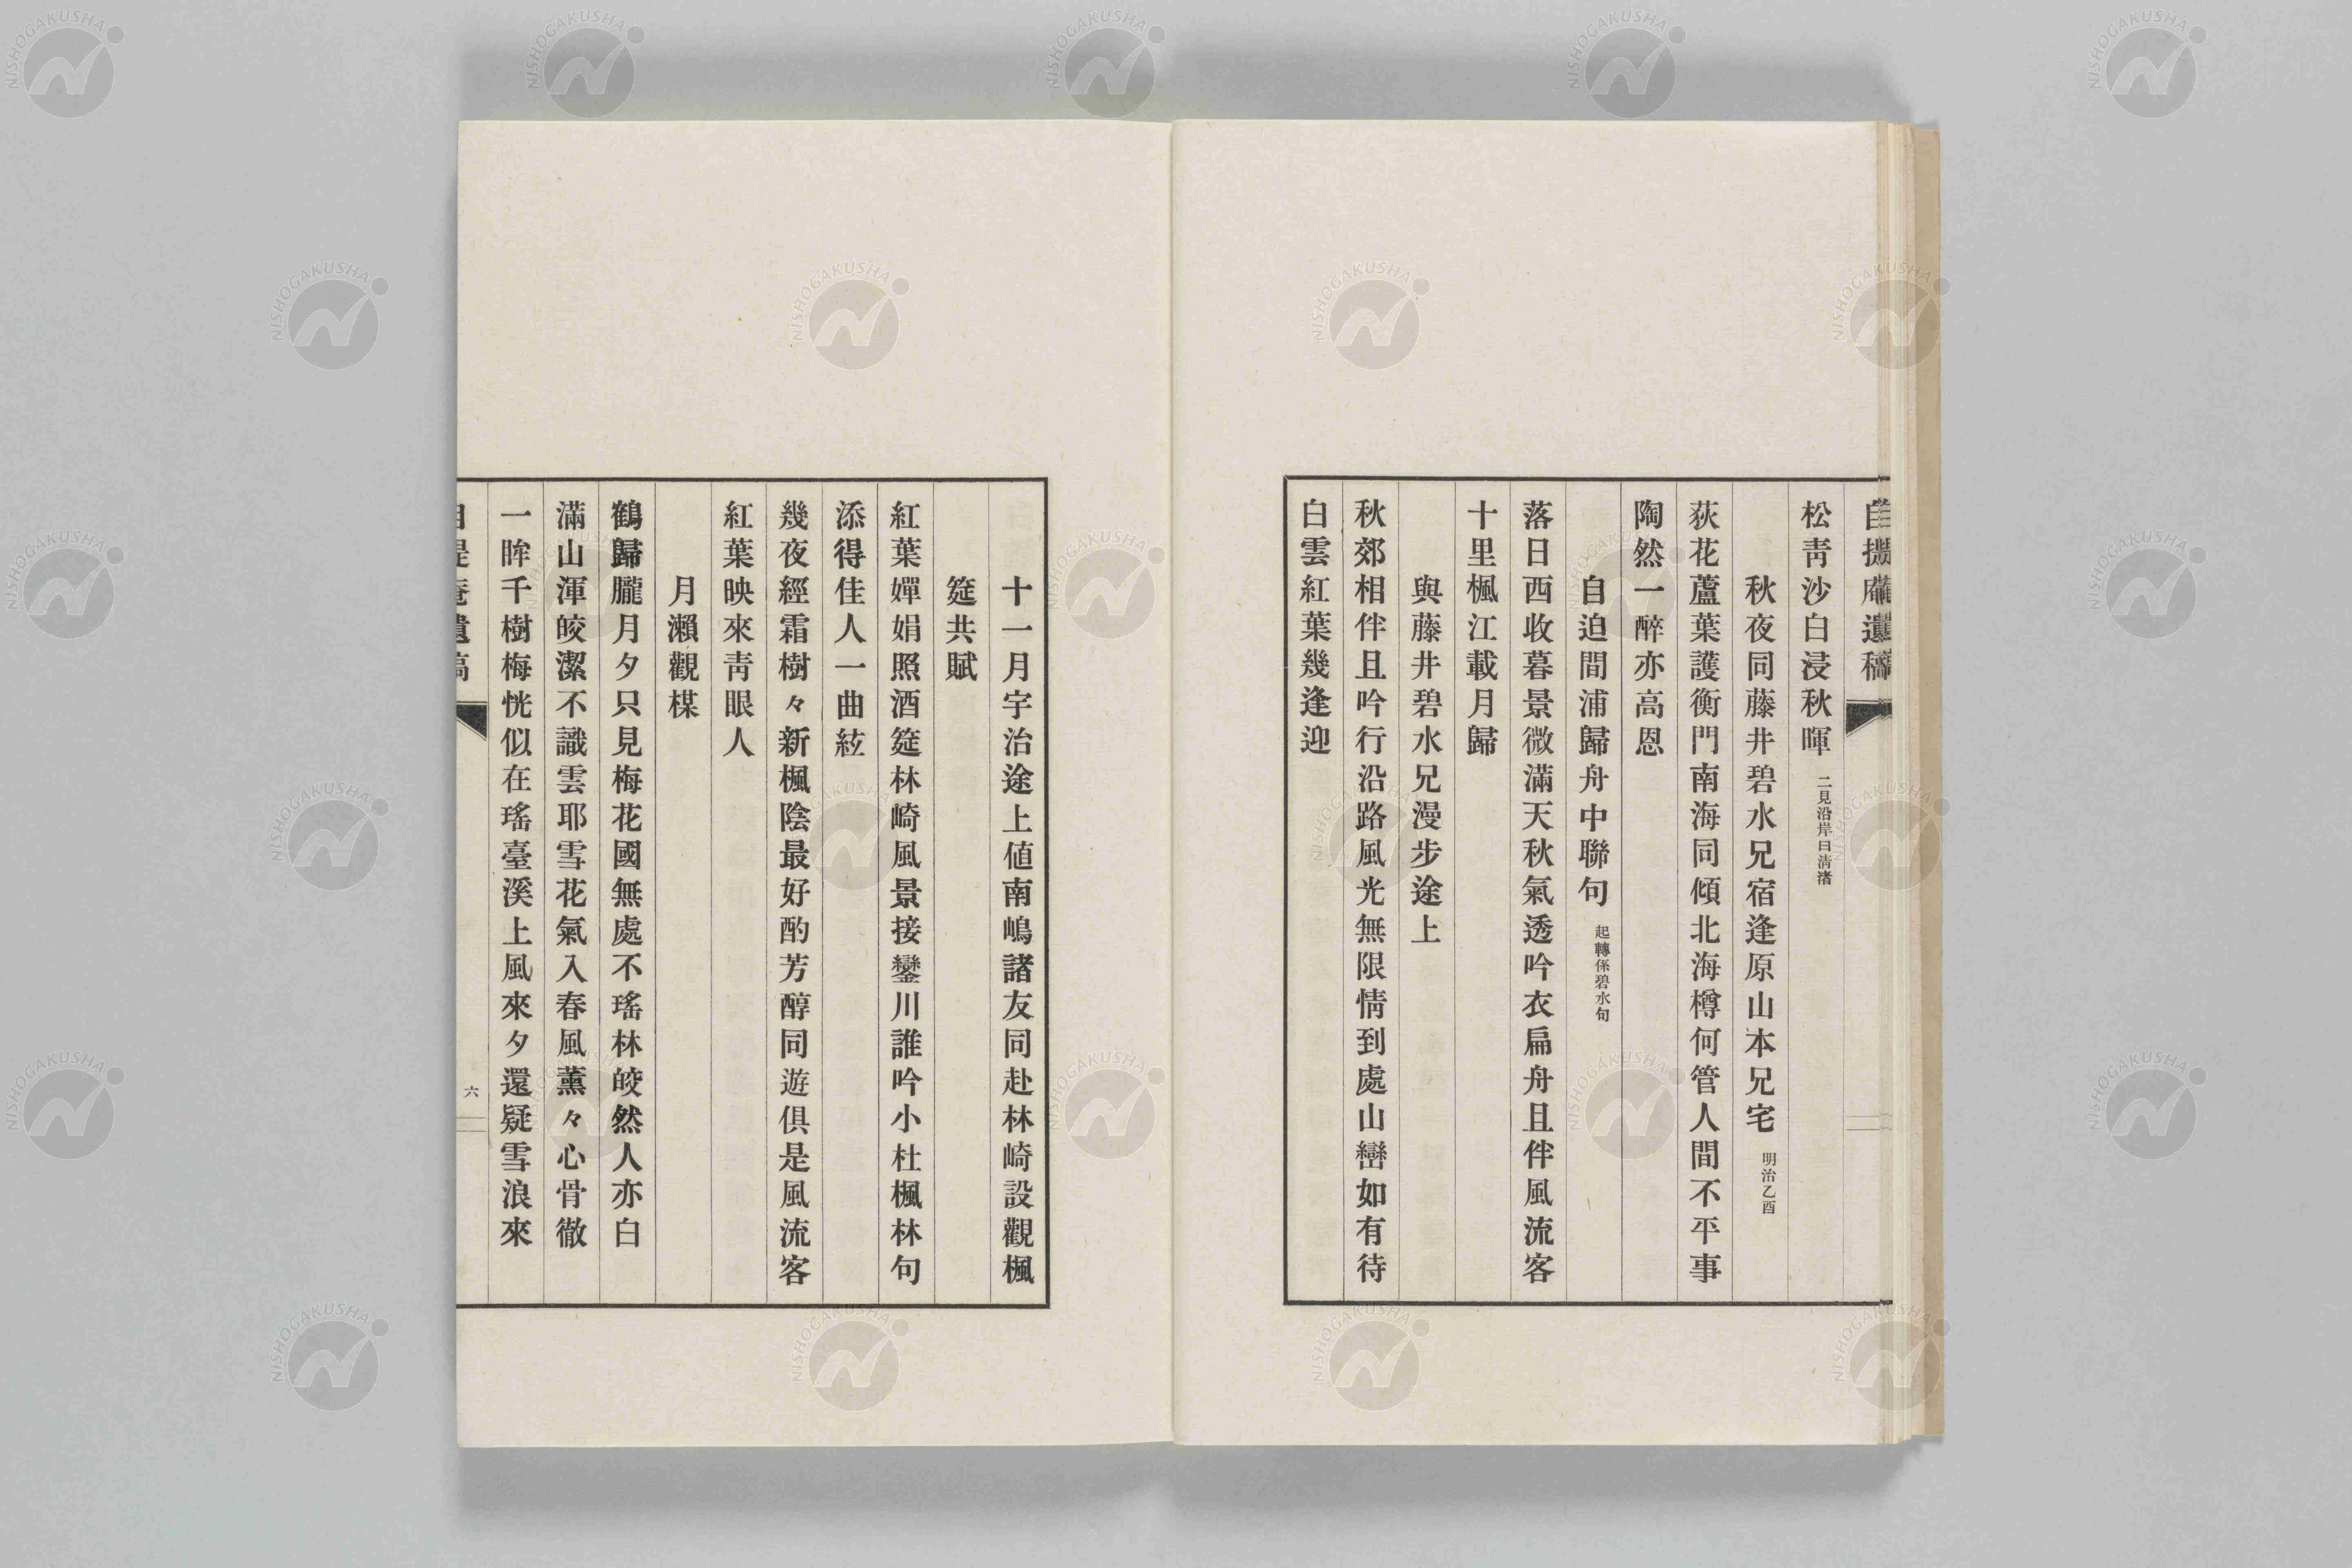 自提庵遺稿
松靑沙白浸秋暉 二見沿岸曰淸渚
秋夜同藤井碧水兄宿逢原山本兄宅 明治乙酉
荻花蘆葉護衡門南海同傾北海樽何管人間不平事
陶然一醉亦高恩
自迫間浦歸舟中聯句 起轉係碧水句
落日西收暮景微滿天秋氣透吟衣扁舟且伴風流客
十里楓江載月歸
與藤井碧水兄漫步途上
秋郊相伴且吟行沿路風光無限情到處山巒如有待
白雲紅葉幾逢迎
十一月宇治途上値南嶋諸友同赴林崎設觀楓
筵共賦
紅葉嬋娟照酒筵林崎風景接鑾川誰吟小杜楓林句
添得佳人一曲絃
幾夜經霜樹々新楓陰最好酌芳醇同遊俱是風流客
紅葉映來靑眼人
月瀨觀楳
鶴歸朧月夕只見梅花國無處不瑤林皎然人亦白
滿山渾皎潔不識雲耶雪花氣入春風薰々心骨徹
一眸千樹梅恍似在瑤臺溪上風來夕還疑雪浪來
自提庵遺稿
六
NISHOGAKUSHA